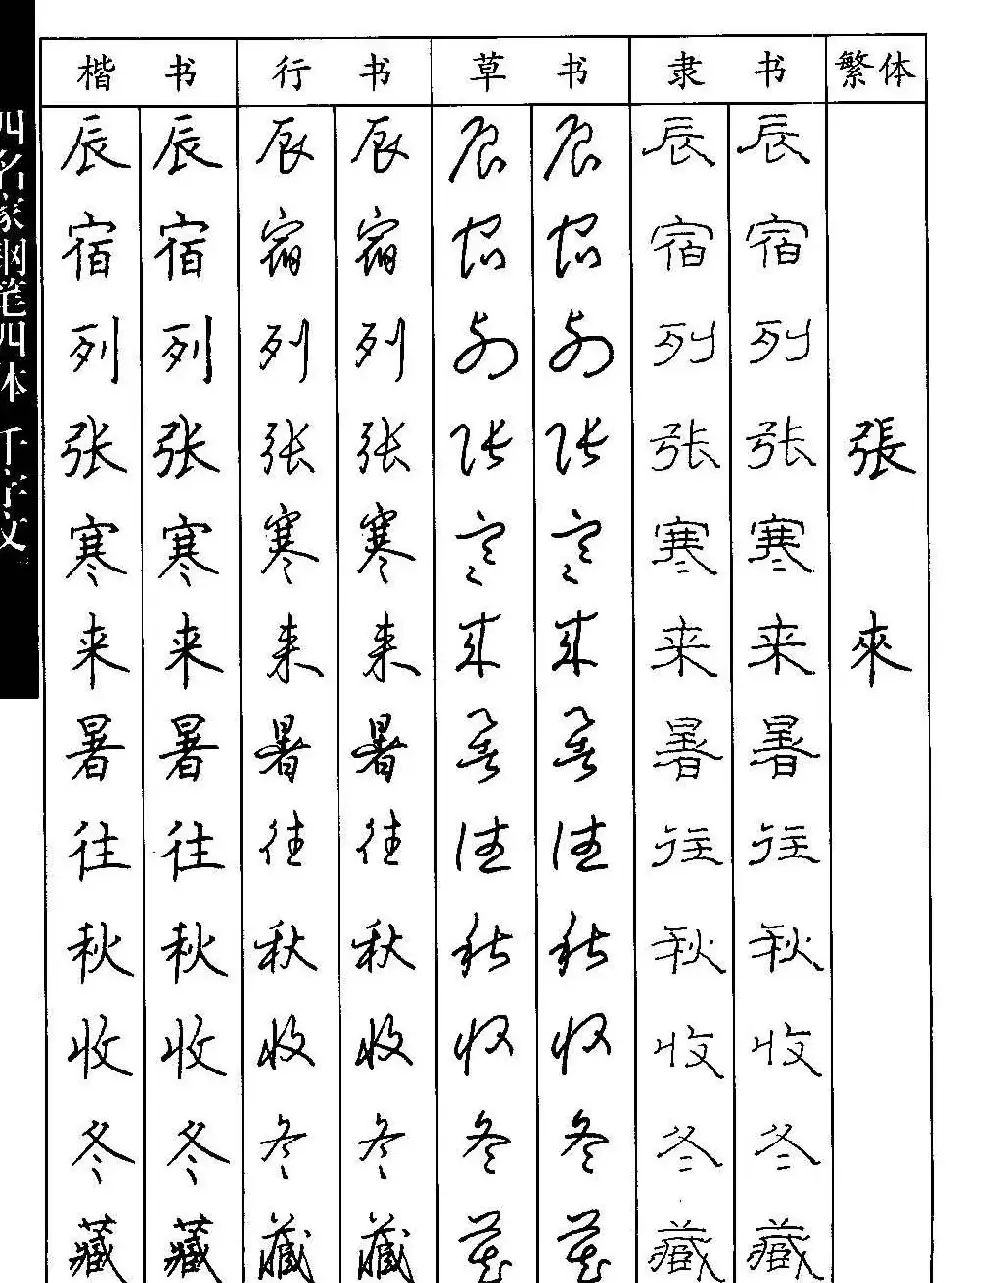 四名家钢笔四体 千字文
楷书 行书 草书 隶书 繁体
辰 辰 辰 辰 辰 辰 辰 辰
宿 宿 宿 宿 宿 宿 宿 宿
列 列 列 列 列 列 列 列
张 张 张 张 张 张 张 张 張
寒 寒 寒 寒 寒 寒 寒 寒
来 来 来 来 来 来 来 来 來
暑 暑 暑 暑 暑 暑 暑 暑
往 往 往 往 往 往 往 往
秋 秋 秋 秋 秋 秋 秋 秋
收 收 收 收 收 收 收 收
冬 冬 冬 冬 冬 冬 冬 冬
藏 藏 藏 藏 藏 藏 藏 藏